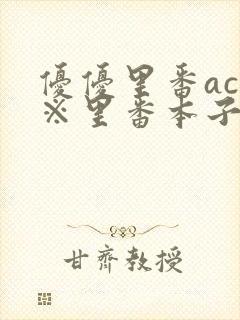 優優里番ac
※里番本子
甘齊教授